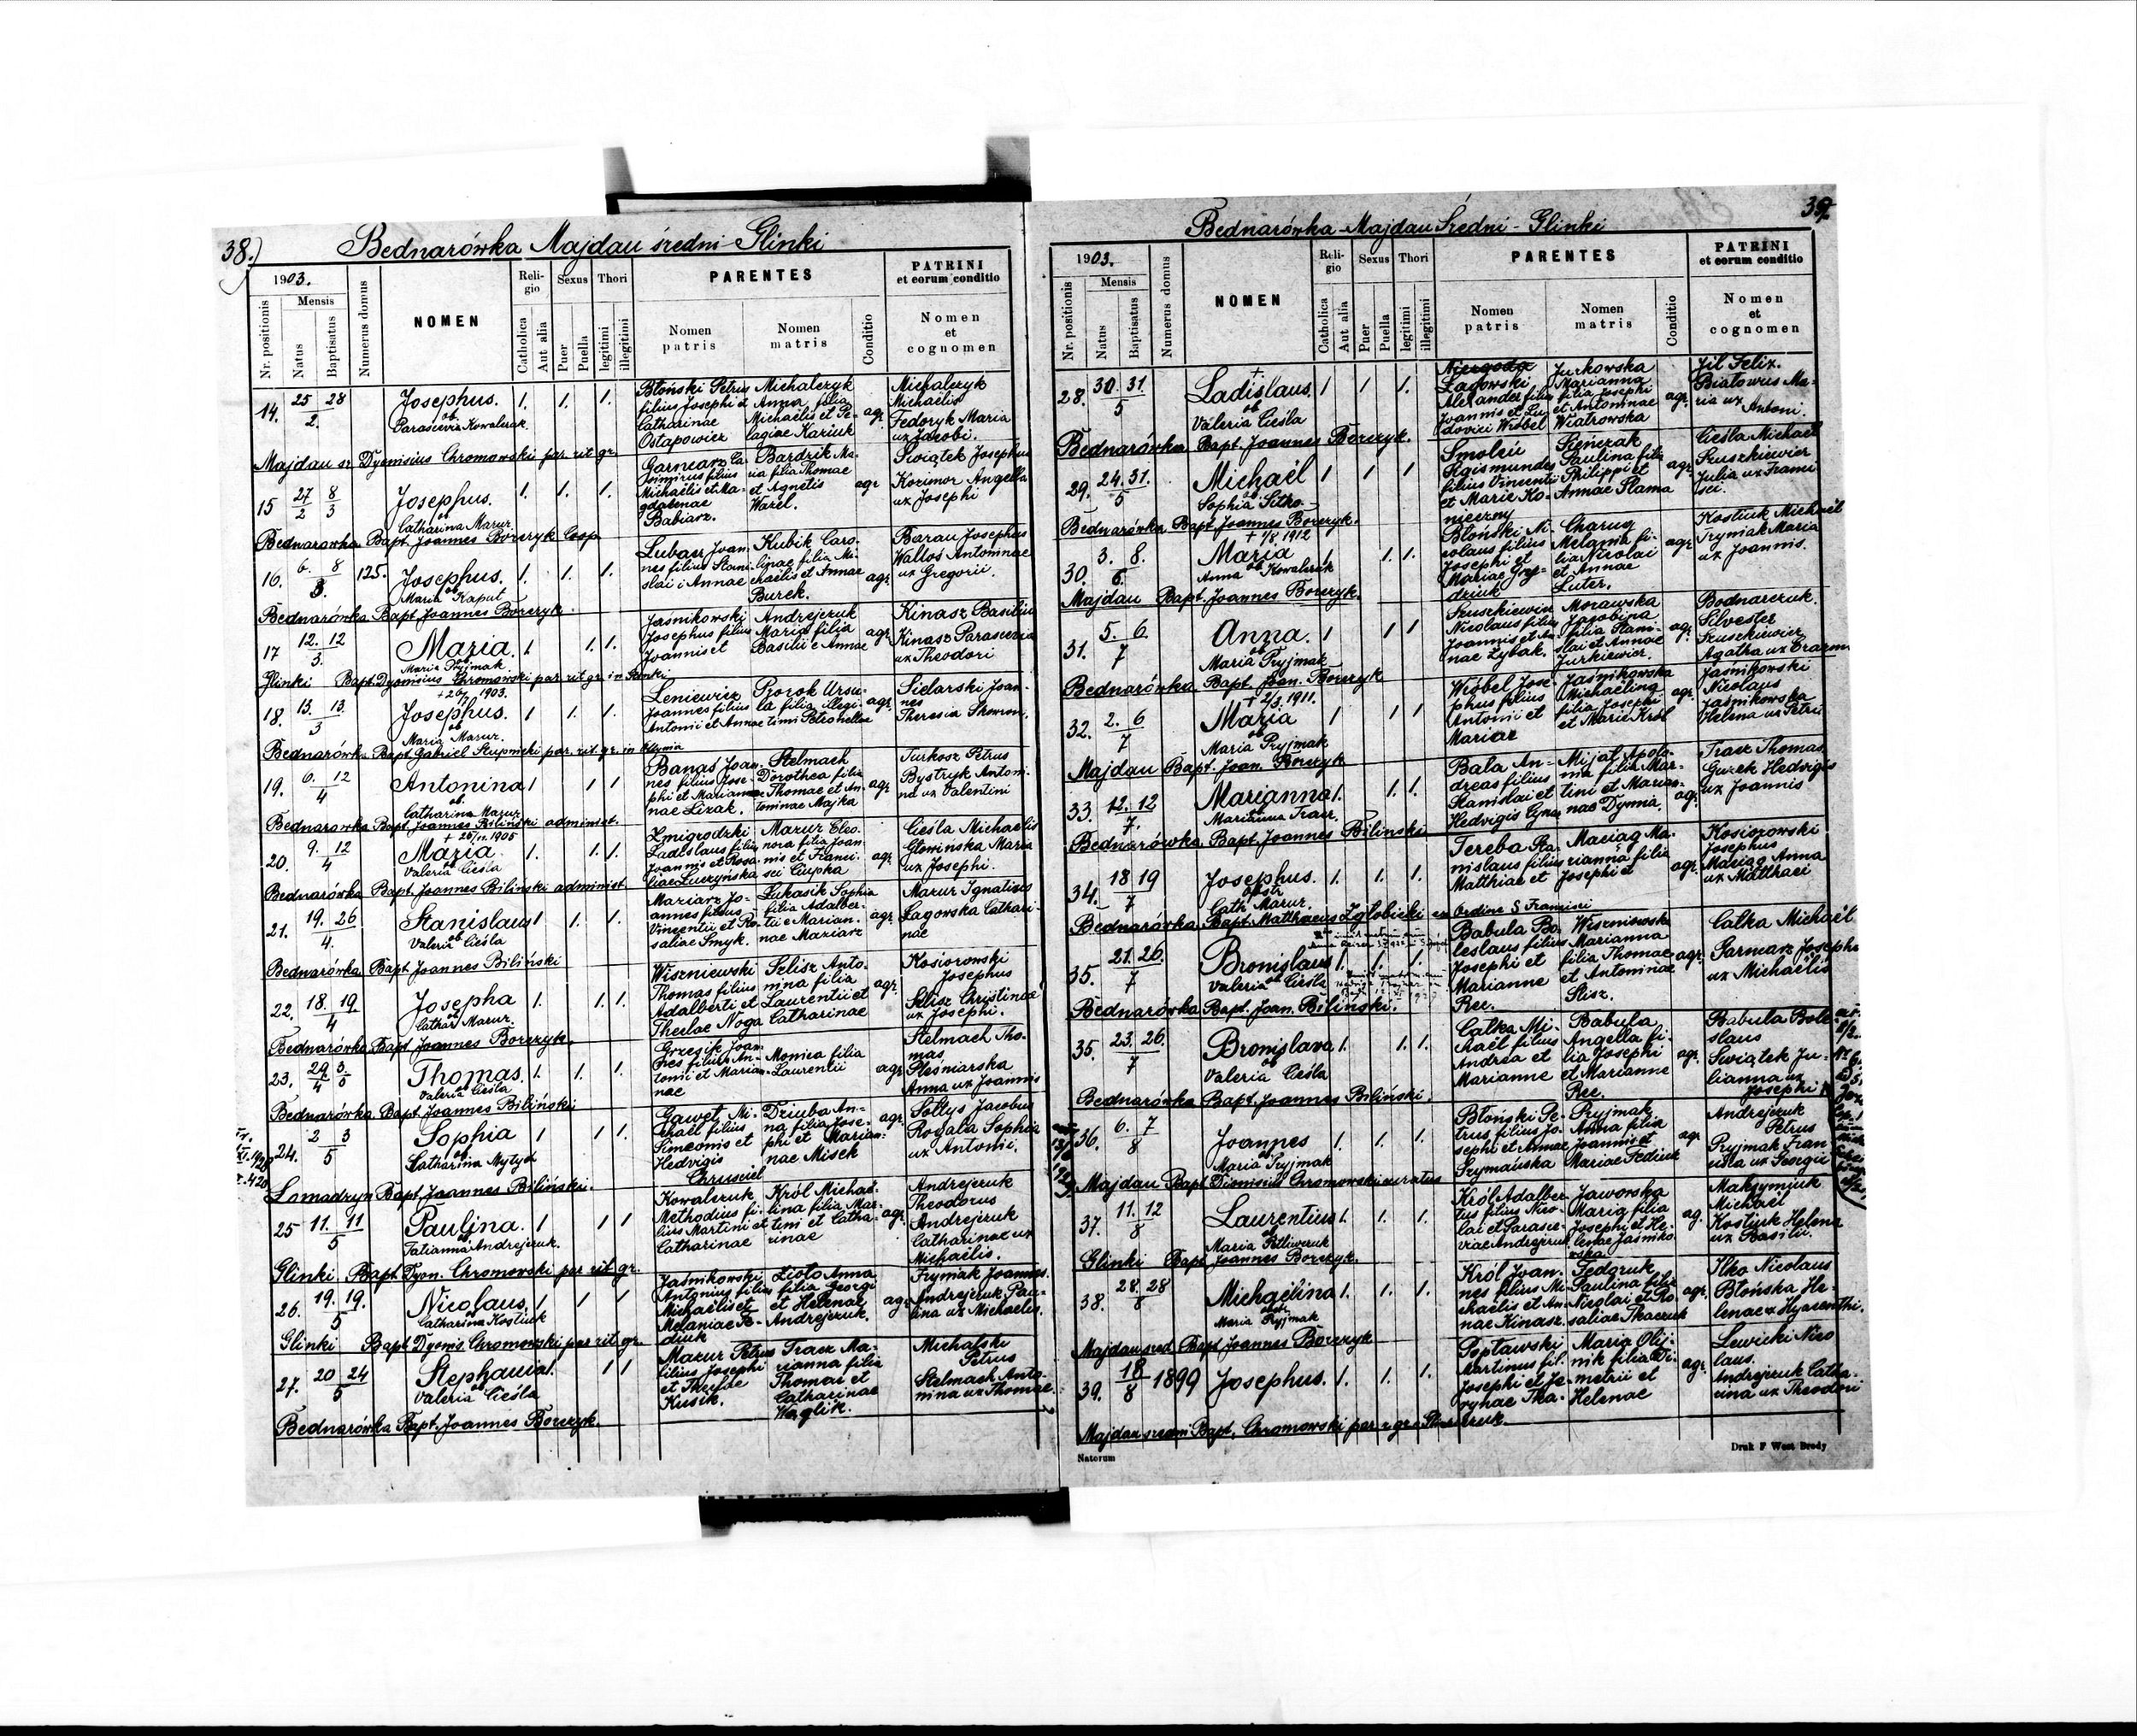 38.)
Bednarówka Majdan średni - Glinki
1903.
Nr. positionis
Mensis
Natus
Baptisatus
Numerus domus
NOMEN
Religio
Catholica
Aut alia
Sexus
Puer
Puella
Thori
legitimi
illegitimi
PARENTES
Nomen patris
Nomen matris
Conditio
PATRINI
et eorum conditio
Nomen
et
cognomen
14. 25 28
2.
Josephus. 1. 1. 1.
ob.
Parascevia Kowalczuk
Błoński Petrus
filius Josephi et
Catharinae
Ostapowicz
Michalczyk
Anna filia
Michaelis et Pe-
lagiae Kaziuk
agr.
Michalczyk
Michaelis
Fedoryk Maria
ux Jacobi.
Majdan śr. Dyonisius Chromowski par. rit. gr.
15 27 8
2 3
Josephus. 1. 1. 1.
ob
Catharina Mazur
Garncarz Ca-
simirus filius
Michaelis et Ma-
gdalenae
Babiarz.
Bardzik Ma-
ria filia Thomae
et Agnetis
Wazel.
agr
Świątek Josephus
Kozimor Angella
ux Josephi
Bednarówka Bapt. Joannes Borczyk Coop.
16. 6. 8
3.
125. Josephus. 1. 1. 1.
ob
Maria Kaput
Lubacz Joan-
nes filius Stani-
slai i Annae
Kubik Caro-
linae filia Mi-
chaelis et Annae
Burek.
agr.
Baran Josephus
Waltos Antoninae
ux Gregorii.
Bednarówka Bapt. Joannes Borczyk.
17 12. 12
3.
Maria. 1 1. 1.
ob
Maria Pryjmak
Jaśnikowski
Josephus filius
Joannis et
Andrejczuk
Maria filia
Basilii e Annae
agr.
Kinasz Basilius
Kinasz Parascevia
ux Theodori
Glinki Bapt. Dyonisius Chromowski par. rit. gr. in
18. 13. 13.
3
Josephus. 1 1. 1.
ob
Maria Mazur.
Leniewicz
Joannes filius
Antonii et Annae
Prorok Ursu-
la filia illegi-
timi Petronellae
agr.
Sielarski Joan-
nes
Theresia Skowron.
Bednarówka Bapt. Gabriel Słupnicki par. rit. gr. in Ottynia
19. 6. 12
4
Antonina 1 1 1
ob.
Catharina Mazur
Banaś Joan-
nes filius Jose-
phi et Marian-
nae Lizak.
Stelmach
Dorothea filia
Thomae et An-
toninae Majka
agr
Turkosz Petrus
Bystryk Antoni-
na ux Valentini
Bednarówka Bapt. Joannes Biliński administ.
+ 26/11. 1905
20. 9. 12
4
Maria. 1. 1. 1.
ob
Valeria Cieśla
Żmigrodzki
Ladislaus filius
Joannis et Rosa-
liae Łuczyńska
Mazur Eleo-
nora filia Joan-
nis et Franci-
sci Ciupka
agr
Cieśla Michaelis
Głowinska Maria
ux Josephi.
Bednarówka Bapt. Joannes Biliński administ.
21. 19. 26
4.
Stanislaus 1 1. 1.
ob
Valeria Cieśla
Maziarz Jo-
annes filius
Vincentii et Ro-
saliae Smyk.
Łukasik Sophia
filia Adalber-
tii e Marian-
nae Maziarz
agr
Mazur Ignatius
Łagowska Cathari-
nae
Bednarówka Bapt. Joannes Biliński
22. 18. 19.
4
Josepha 1. 1. 1.
ob
Cathar. Mazur.
Wiszniewski
Thomas filius
Adalberti et
Theclae Noga
Szlisz Anto-
nina filia
Laurentii et
Catharinae
agr.
Kosiorowski
Josephus
Szlisz Christinae
ux Josephi.
Bednarówka Bapt Joannes Borczyk.
23. 29 3
4 5
Thomas 1. 1. 1.
ob
Valeria Cieśla
Grzesik Joan-
nes filius An-
tonii et Marian-
nae
Monica filia
Laurentii
agr.
Stelmach Tho-
mas
Pleśniarska
Anna ux Joannis
Bednarówka Bapt. Joannes Biliński
24. 2 3
5
Sophia 1 1 1
ob
Catharina Mytych
Gaweł Mi-
chaël filius
Simeonis et
Hedvigis
Chruściel
Dziuba An-
na filia Jose-
phi et Marian-
nae Misek
agr.
Sołtys Jacobus
Rogala Sophia
ux Antonii.
Bapt. Joannes Biliński.
25 11. 11
5
Paulina. 1 1 1
ob
Tatianna Andrejczuk.
Kowalczuk
Methodius fi-
lius Martini et
Catharinae
Król Michaë-
lina filia Mar-
tini et Catha-
rinae
agr
Andrejczuk
Theodorus
Andrejczuk
Catharinae ux
Michaëlis.
Glinki Bapt. Dyon. Chromowski par rit. gr.
26. 19. 19.
5
Nicolaus. 1 1 1
ob
Catharina Kostiuk
Jaśnikowski
Antonius filius
Michaelis et
Melaniae Fe-
diuk
Anna
filia Georgi
et Helenae
Andrejczuk.
agr
Pryjmak Joannes.
Andrejczuk Pau-
lina ux Michaelis.
Glinki Bapt Dyonis. Chromowski par rit gr.
27. 20 24
5
Stephania 1. 1 1
ob
Valeria Cieśla
Mazur Petrus
filius Josephi
et Theclae
Kusik.
Tracz Ma-
rianna filia
Thomae et
Catharinae
Węglik.
Michalski
Petrus
Stelmach Anto-
nina ux Thomae.
Bednarówka Bapt. Joannes Borczyk.
39.
Bednarówka - Majdan Średni - Glinki
1903.
Nr. positionis
Mensis
Natus
Baptisatus
Numerus domus
NOMEN
Religio
Catholica
Aut alia
Sexus
Puer
Puella
Thori
legitimi
illegitimi
PARENTES
Nomen patris
Nomen matris
Conditio
PATRINI
et eorum conditio
Nomen
et
cognomen
28. 30. 31
5
+
Ladislaus. 1 1 1.
ob
Valeria Cieśla
Łagowski
Alexander filius
Joannis et Lu-
dovici Wróbel
Jurkowska
Marianna
filia Josephi
et Antoninae
Wiatrowska
agr.
Jil Felix.
Białowus Ma-
ria ux
Antoni.
Bednarówka Bapt. Joannes Borczyk.
29. 24. 31.
5
Michaël 1 1 1
ob
Sophia Sitko
Smoleń
Sigismundes
filius Vincentii
et Marie Ko-
nieczny
Sieńczak
Paulina filia
Philippi et
Annae Słama
agr.
Cieśla Michaël
Szuszkiewicz
Julia ux Franci-
sci.
Bednarówka Bapt Joannes Borczyk.
+ 1/8 1912
30. 3. 8.
6.
Maria 1 1. 1.
ob
Anna Kowalczuk
Błoński Ni-
colaus filius
Josephi et
Mariae Gry-
dziuk
Charuy
Melania fi-
lia Nicolai
et Annae
Luter.
agr
Kostiuk Michaël
Tryniak Maria
ux Joannis.
Majdan Bapt. Joannes Borczyk.
31. 5. 6.
7
Anna. 1 1 1
ob
Maria Pryjmak
Szuszkiewicz
Nicolaus filius
Joannis et An-
nae Zybak.
Morawska
Jacobina
filia Stani-
slai et Annae
Jurkiewicz.
agr.
Bodnarczuk.
Silvester
Szuszkiewicz
Agatha ux Erazmi
Bednarówka Bapt. Joan. Borczyk
+ 2/3 1911.
32. 2. 6
7
Maria 1 1 1
ob
Maria Pryjmak
Wróbel Jose-
phus filius
Antonii et
Mariae
Jaśnikowska
Michaëlina
filia Josephi
et Marie Król
agr.
Jaśnikowski
Nicolaus
Jaśnikowska
Helena ux Petri
Majdan Bapt. Joan. Borczyk
33. 12. 12
7.
Marianna 1. 1. 1.
ob
Marianna Tracz.
Bala An-
dreas filius
Stanislai et
Hedvigis
Mijal Apolo-
nia filia Mar-
tini et Marian-
nae Dymna.
agr.
Tracz Thomas
Guzek Hedvigis
ux Joannis
Bednarówka Bapt. Joannes Biliński
34. 18 19
7
Josephus. 1. 1. 1.
obstr
Cath. Mazur.
Tereba Sta-
nislaus filius
Matthiae et
Maciag Ma-
rianna filia
Josephi et
agr.
Kosiorowski
Josephus
Maciag Anna
ux Matthaei
Bednarówka Bapt. Matthaeus Zgłobicki ex Ordine S Francisci
35. 21. 26.
7
Bronislaus 1. 1. 1.
ob
Valeria Cieśla
Babula Bo-
leslaus filius
Josephi et
Marianne
Rec.
Wiszniewska
Marianna
filia Thomae
et Antoninae
Slisz.
agr.
Całka Michaël.
Garncarz Josepha
ux Michaëlis
Bednarówka Bapt. Joan. Biliński.
35. 23. 26.
7
Bronislava 1. 1. 1.
ob
Valeria Cieśla
Całka Mi-
chaël filius
Andrea et
Marianne
Babula
Angella fi-
lia Josephi
et Marianne
Rec.
agr.
Babula Bole-
slaus
Świątek Ju-
lianna ux
Josephi
Bednarówka Bapt. Joannes Biliński.
36. 6. 7
8
Joannes 1. 1. 1.
ob
Maria Pryjmak
Błoński Pe-
trus filius Jo-
sephi et Annae
Szymańska
Pryjmak
Anna filia
Joannis et
Mariae Fediuk
agr
Andrejczuk
Petrus
Pryjmak Fran-
cisca ux Georgii
Majdan Bapt. Dionisius Chromowski curatus
37. 11. 12
8
Laurentius 1. 1. 1.
ob
Maria
Król Adalber-
tus filius Nico-
lai et Parasce-
viae Andrejczuk
Jaworska
Maria filia
Josephi et He-
lenae Jaśniko-
wska
ag.
Maksymiuk
Michaël
Kostiuk Helena
ux Basilii.
Glinki Bapt Joannes Borczyk.
38. 28. 28
8
Michaëlina 1. 1. 1.
obstr
Maria Pryjmak
Król Joan-
nes filius Mi-
chaëlis et An-
nae Kinasz.
Fedoruk
Paulina filia
Nicolai et Ro-
saliae Tkaczuk
agr.
Ilko Nicolaus
Błońska He-
lenae ux Hyacinthi.
Majdan śred Bapt Joannes Borczyk
39. 18
8
1899 Josephus. 1. 1. 1.
Popławski
Martinus fil.
Josephi et Je-
vryhae Tka-
czuk.
Maria Olij-
nik filia Di-
metrii et
Helenae
agr.
Lewicki Nico-
laus.
Andrejczuk Catha-
rina ux Theodori
Majdan średni Bapt. Chromowski par. r. gr.
Natorum
Druk F West Brody